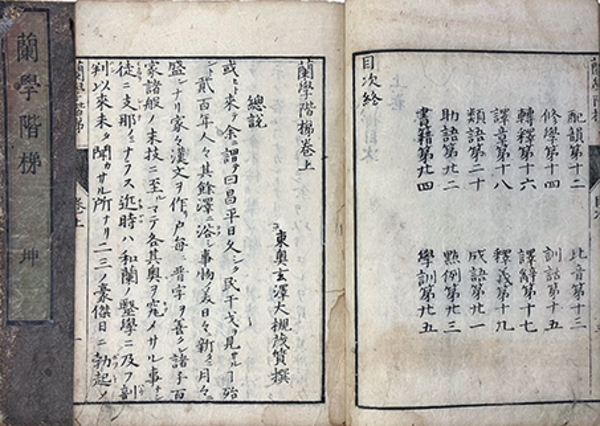 配韻第十二　比音第十三
修學第十四　訓詁第十五
轉釋第十六　譯辭第十七
譯章第十八　釋義第十九
類語第二十　成語第廿一
助語第廿二　點例第廿三
書籍第廿四　學訓第廿五
目次終
蘭學階梯卷上
東奧玄澤大槻茂質撰
總說
或ヒト來テ余ニ謂テ曰昌平日久シク民干戈ヲ見サルヿ殆
ント貳百年人々其餘澤ニ浴シ事物ノ美日々新ニ月々
盛ンナリ家々漢文ヲ作リ戶每ニ晋字ヲ善クシ諸子百
家諸般ノ末技ニ至ルマテ各其奧ヲ究メサル事ナシ
徒ニ支那ノミナラス近時ハ和蘭ノ毉學ニ及フ剖
判以來未タ聞カサル所ナリ二三ノ豪傑日ニ勃起シ
蘭學階梯　卷上
蘭學階梯　坤